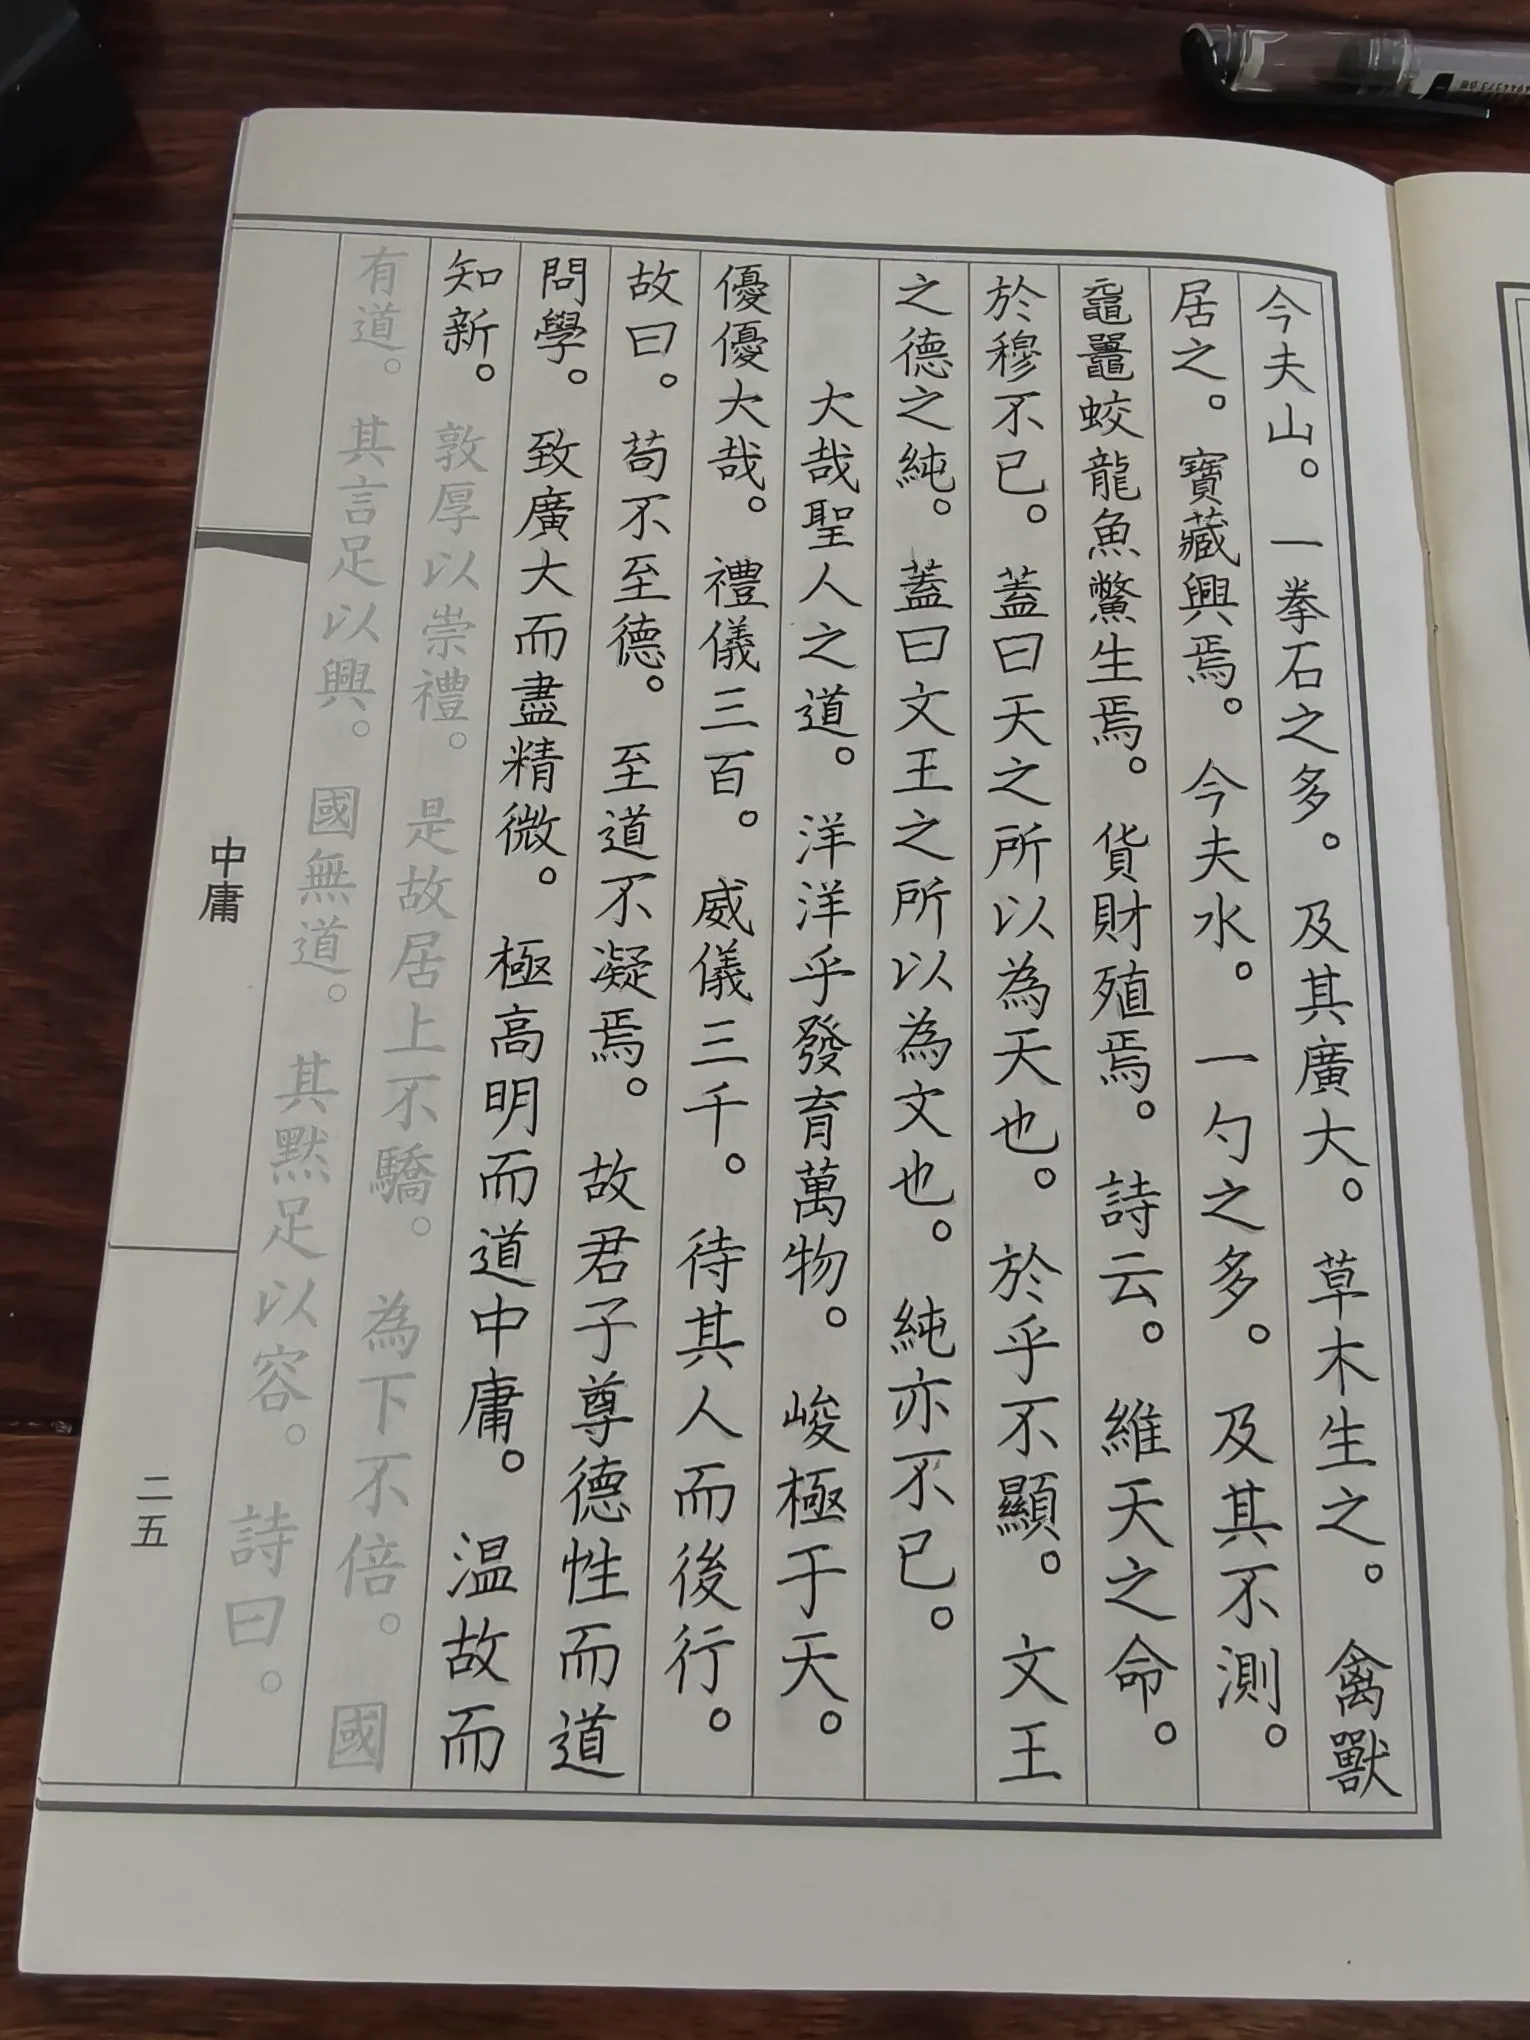 今夫山。一拳石之多。及其廣大。草木生之。禽獸
居之。寶藏興焉。今夫水。一勺之多。及其不測。
黿鼉蛟龍魚鱉生焉。貨財殖焉。詩云。維天之命。
於穆不已。蓋曰天之所以為天也。於乎不顯。文王
之德之純。蓋曰文王之所以為文也。純亦不已。
大哉聖人之道。洋洋乎發育萬物。峻極于天。
優優大哉。禮儀三百。威儀三千。待其人而後行。
故曰。苟不至德。至道不凝焉。故君子尊德性而道
問學。致廣大而盡精微。極高明而道中庸。温故而
知新。敦厚以崇禮。是故居上不驕。為下不倍。國
有道。其言足以興。國無道。其默足以容。詩曰。
中庸
二五